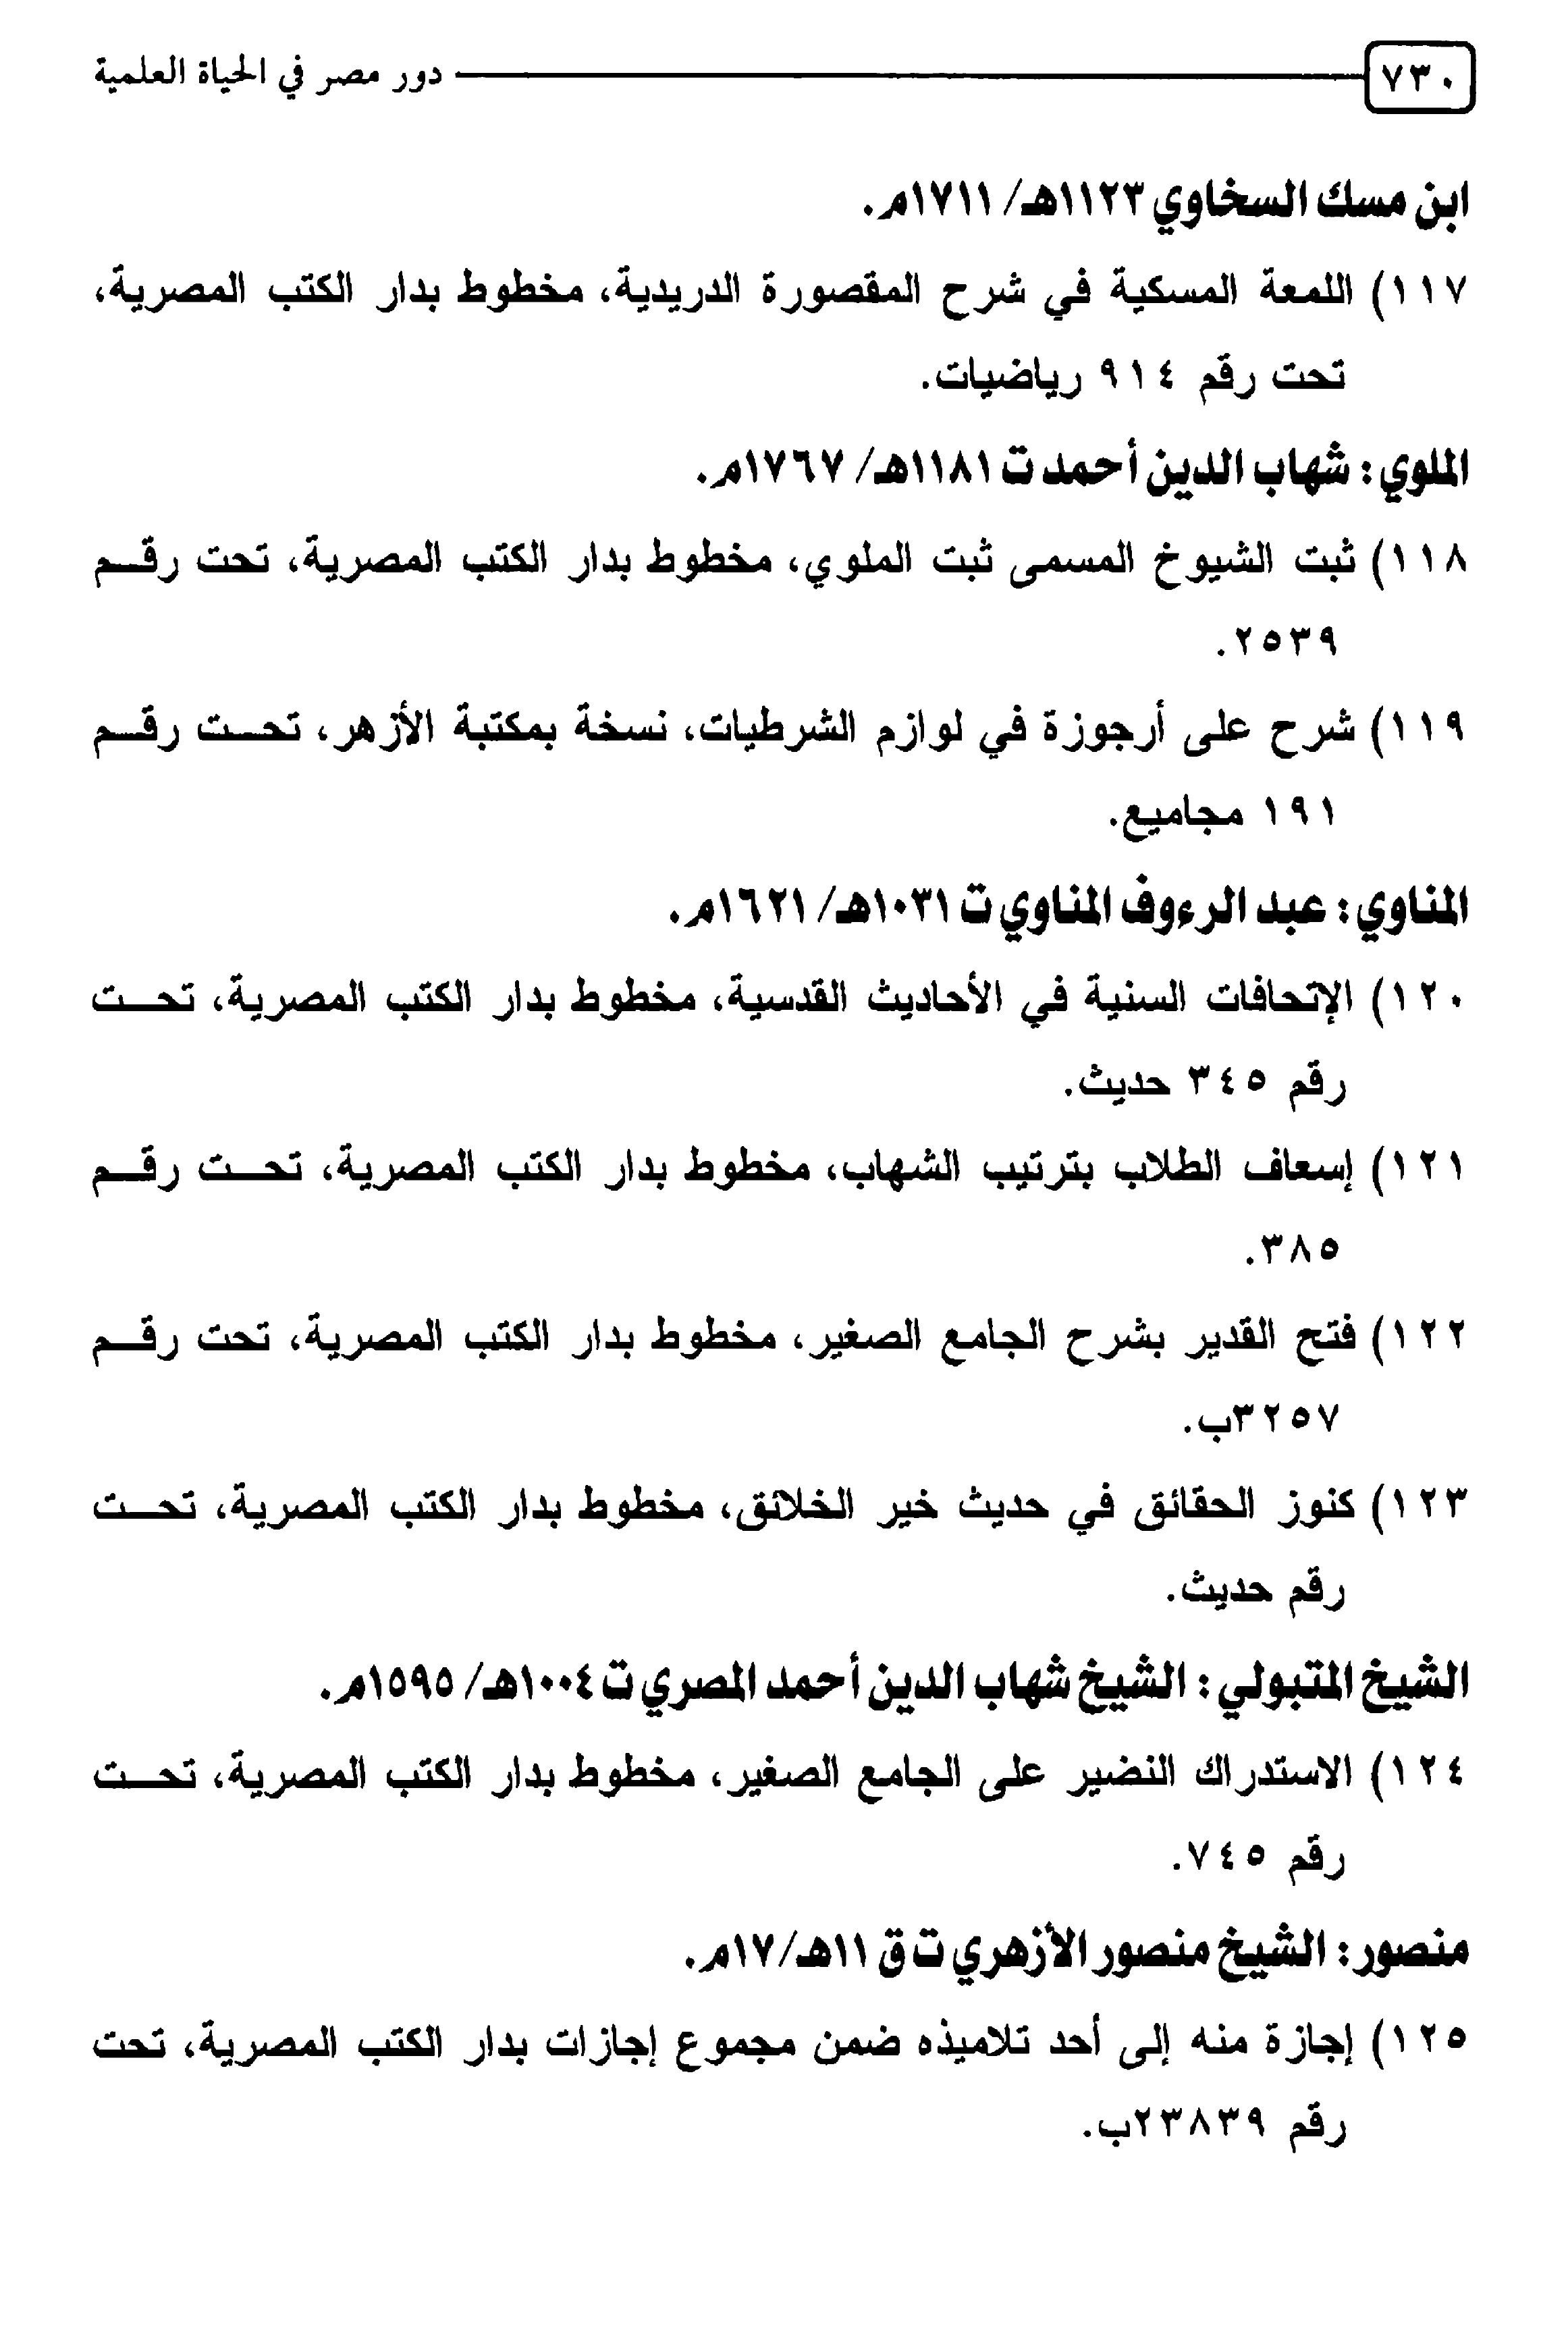 ٧٣٠ دور مصر في الحياة العلمية
ابن مسك السخاوي ١١٢٣هـ/ ١٧١١م.
١١٧) اللمعة المسكية في شرح المقصورة الدريدية، مخطوط بدار الكتب المصرية،
تحت رقم ٩١٤ رياضيات.
الملوي: شهاب الدين أحمد ت ١١٨١هـ/ ١٧٦٧م.
١١٨) ثبت الشيوخ المسمى ثبت الملوي، مخطوط بدار الكتب المصرية، تحت رقـم
٢٥٣٩.
١١٩) شرح على أرجوزة في لوازم الشرطيات، نسخة بمكتبة الأزهر، تحـت رقـم
١٩١ مجاميع.
المناوي: عبد الرءوف المناوي ت ١٠٣١هـ/ ١٦٢١م.
١٢٠) الإتحافات السنية في الأحاديث القدسية، مخطوط بدار الكتب المصرية، تحـت
رقم ٣٤٥ حديث.
١٢١) إسعاف الطلاب بترتيب الشهاب، مخطوط بدار الكتب المصرية، تحـت رقـم
٣٨٥.
١٢٢) فتح القدير بشرح الجامع الصغير، مخطوط بدار الكتب المصرية، تحت رقـم
٣٢٥٧ب.
١٢٣) كنوز الحقائق في حديث خير الخلائق، مخطوط بدار الكتب المصرية، تحـت
رقم حديث.
الشيخ المتبولي: الشيخ شهاب الدين أحمد المصري ت ١٠٠٤هـ/ ١٥٩٥م.
١٢٤) الاستدراك النضير على الجامع الصغير، مخطوط بدار الكتب المصرية، تحـت
رقم ٧٤٥.
منصور: الشيخ منصور الأزهري ت ق ١١هـ/١٧م.
١٢٥) إجازة منه إلى أحد تلاميذه ضمن مجموع إجازات بدار الكتب المصرية، تحت
رقم ٢٣٨٣٩ب.